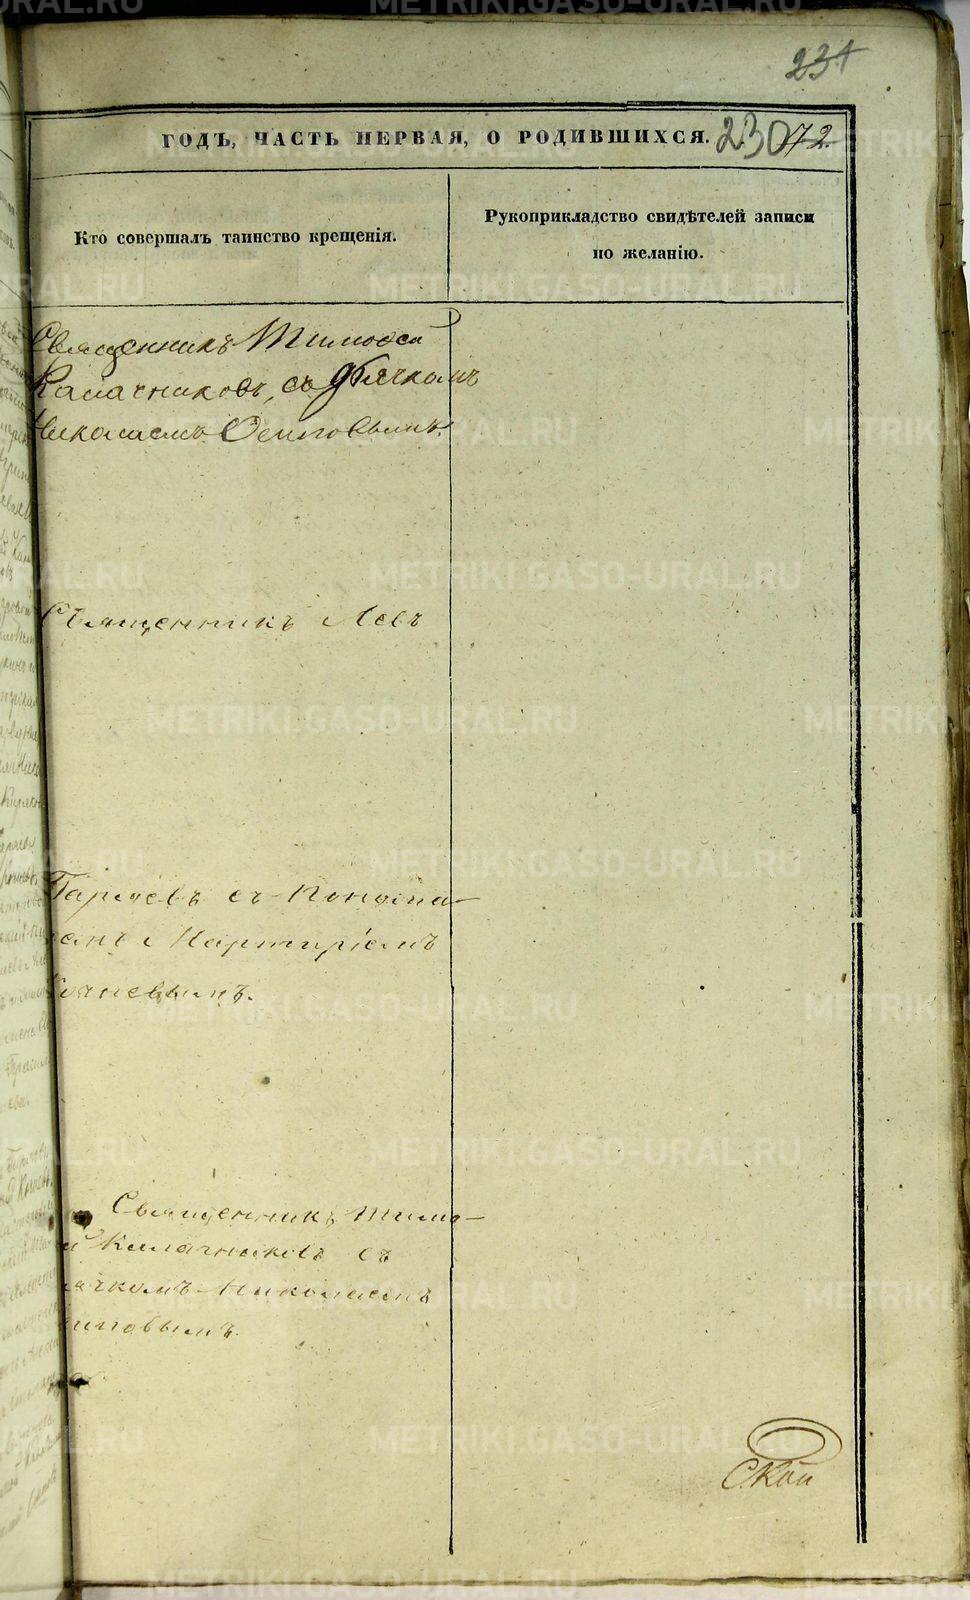 231
ГОДЪ, ЧАСТЬ ПЕРВАЯ, О РОДИВШИХСЯ. 230 172.
Кто совершалъ таинство крещенія.
Рукоприкладство свидѣтелей записи
по желанію.
Священникъ Тимоѳей
Калачниковъ, съ дьячкомъ
Николаемъ Осиповымъ.
Священникъ Левъ
Гаряевъ съ Понома-
Мартиріемъ
Священникъ Тимо-
й Калачниковъ съ
ячкомъ Николаемъ
иповымъ.
METRIKI.GASO-URAL.RU